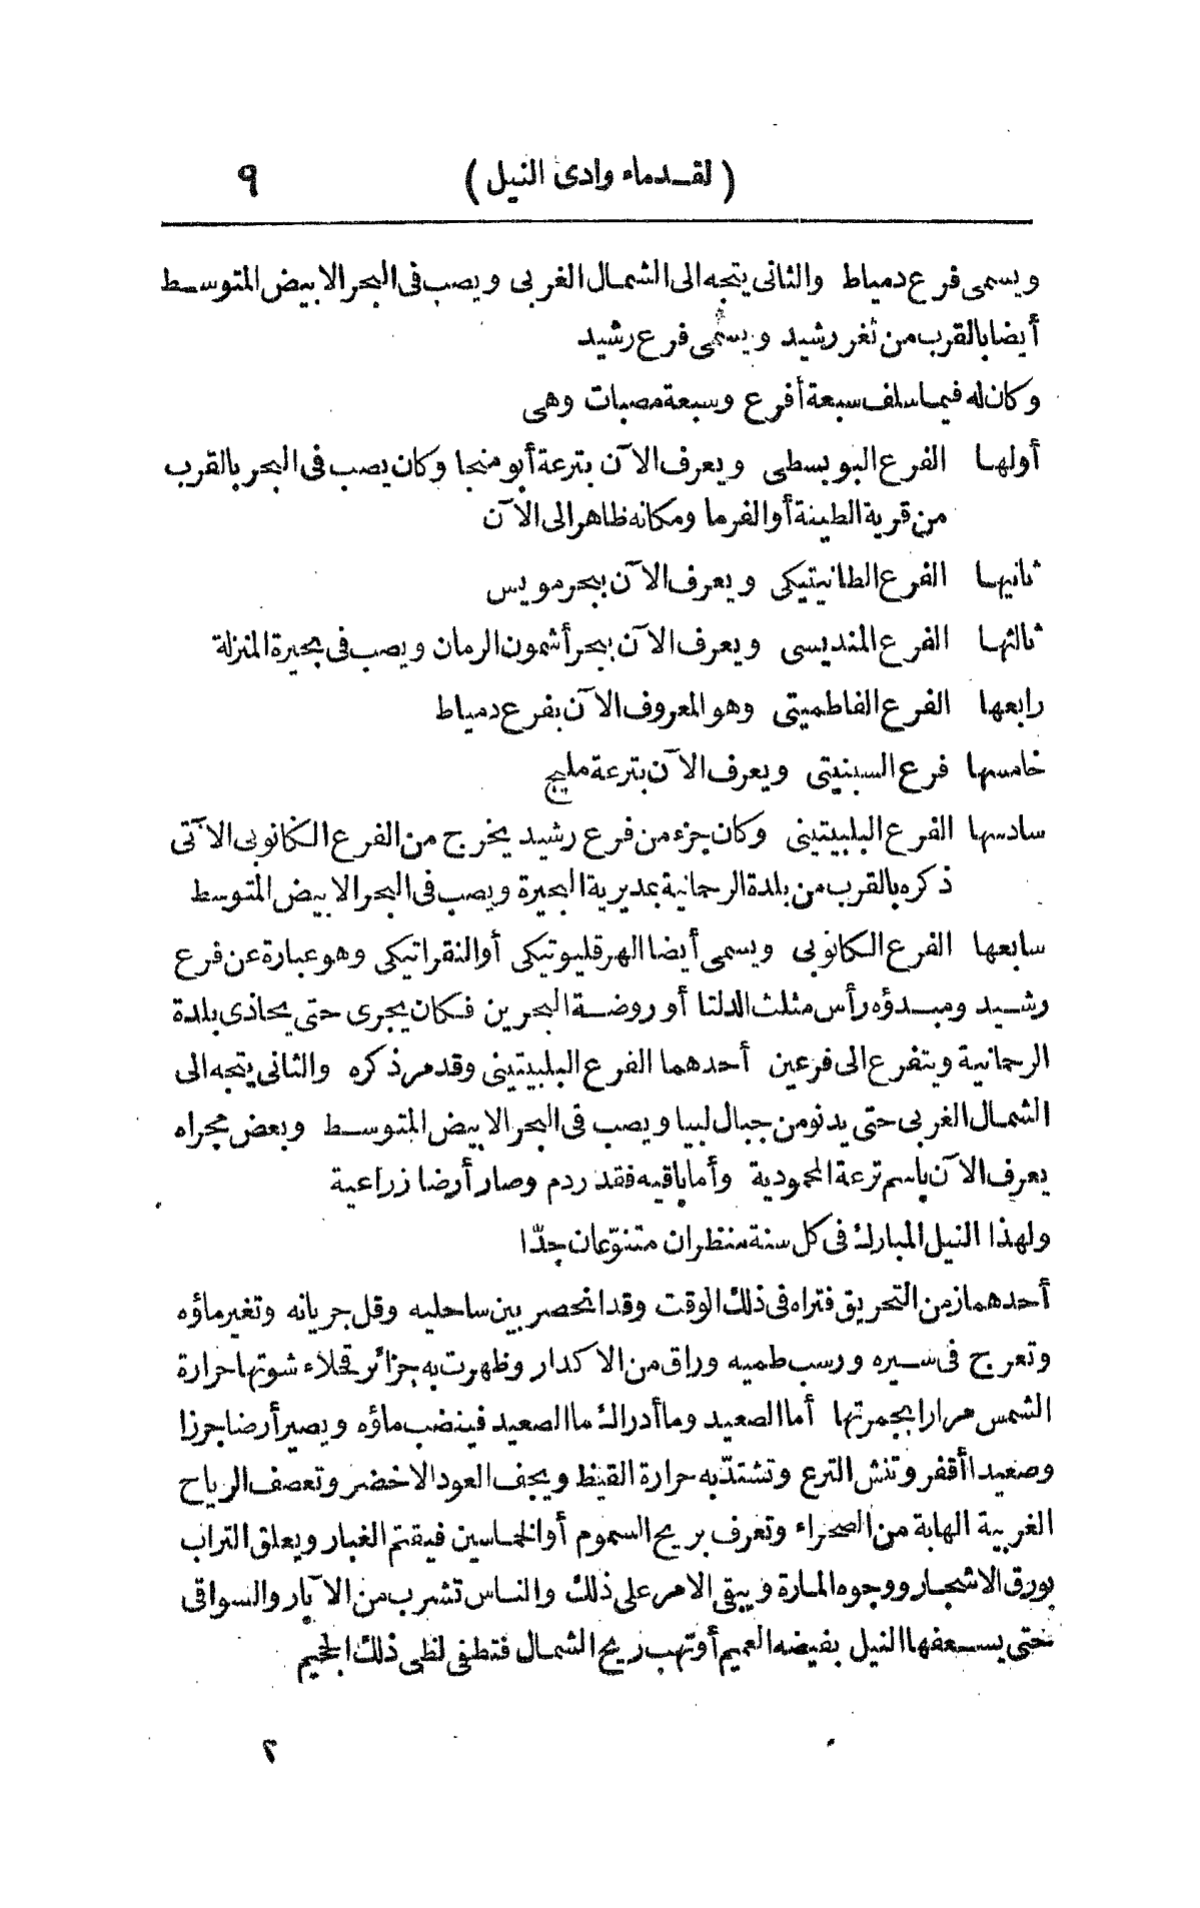 (لقدماء وادى النيل) ٩
ويسمى فرع دمياط والثانى يتجه الى الشمال الغربى ويصب فى البحر الابيض المتوسط
أيضا بالقرب من ثغر رشيد ويسمى فرع رشيد
وكان له فيما سلف سبعة أفرع وسبعة مصبات وهى
أولها الفرع البوبسطى ويعرف الآن بترعة أبو منجا وكان يصب فى البحر بالقرب
من قرية الطينة أوالفرما ومكانه ظاهر الى الآن
ثانيها الفرع الطانيتيكى ويعرف الآن ببحر مويس
ثالثها الفرع المنديسى ويعرف الآن ببحر أشمون الرمان ويصب فى بحيرة المنزلة
رابعها الفرع الفاطميتى وهو المعروف الآن بفرع دمياط
خامسها فرع السبنيتى ويعرف الآن بترعة مليج
سادسها الفرع البلبيتينى وكان جزء من فرع رشيد يخرج من الفرع الكانوبى الآتى
ذكره بالقرب من بلدة الرحمانية بمديرية البحيرة ويصب فى البحر الابيض المتوسط
سابعها الفرع الكانوبى ويسمى أيضا الهرقليوتيكى أوالنقراتيكى وهو عبارة عن فرع
رشيد ومبدؤه رأس مثلث الدلتا أو روضة البحرين فكان يجرى حتى يحاذى بلدة
الرحمانية ويتفرع الى فرعين أحدهما الفرع البلبيتينى وقد مر ذكره والثانى يتجه الى
الشمال الغربى حتى يدنو من جبال لبيا ويصب فى البحر الابيض المتوسط وبعض مجراه
يعرف الآن باسم ترعة المحمودية وأما باقيه فقد ردم وصار أرضا زراعية
ولهذا النيل المبارك فى كل سنة منظران متنوّعان جدّا
أحدهما زمن التحريق فتراه فى ذلك الوقت وقد انحصر بين ساحليه وقل جريانه وتغير ماؤه
وتعرج فى سيره ورسب طميه وراق من الاكدار وظهرت به جزائر قحلاء شوتها حرارة
الشمس مرارا بجمرتها أما الصعيد وما أدراك ما الصعيد فينضب ماؤه ويصير أرضا جرزا
وصعيدا أقفر وتنش الترع وتشتدّ به حرارة القيظ ويجف العود الاخضر وتعصف الرياح
الغربية الهابة من الصحراء وتعرف بريح السموم أوالخماسين فيقتم الغبار ويعلق التراب
بورق الاشجار ووجوه المارة ويبقى الامر على ذلك والناس تشرب من الآبار والسواقى
حتى يسعفها النيل بفيضه العميم أوتهب ريح الشمال فتطفى لظى ذلك الجحيم
٢